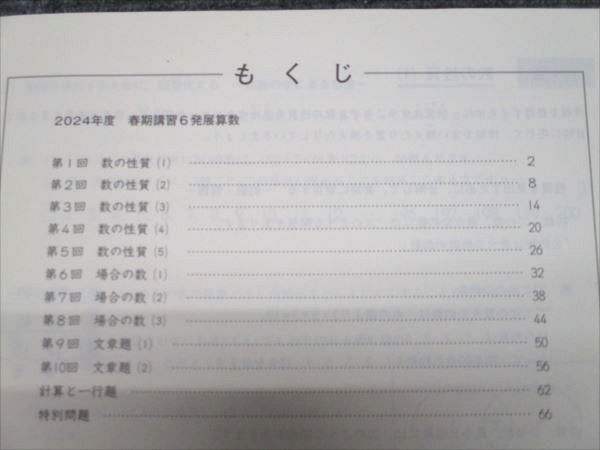 もくじ
2024年度 春期講習6発展算数
第1回 数の性質 (1) 2
第2回 数の性質 (2) 8
第3回 数の性質 (3) 14
第4回 数の性質 (4) 20
第5回 数の性質 (5) 26
第6回 場合の数 (1) 32
第7回 場合の数 (2) 38
第8回 場合の数 (3) 44
第9回 文章題 (1) 50
第10回 文章題 (2) 56
計算と一行題 62
特別問題 66